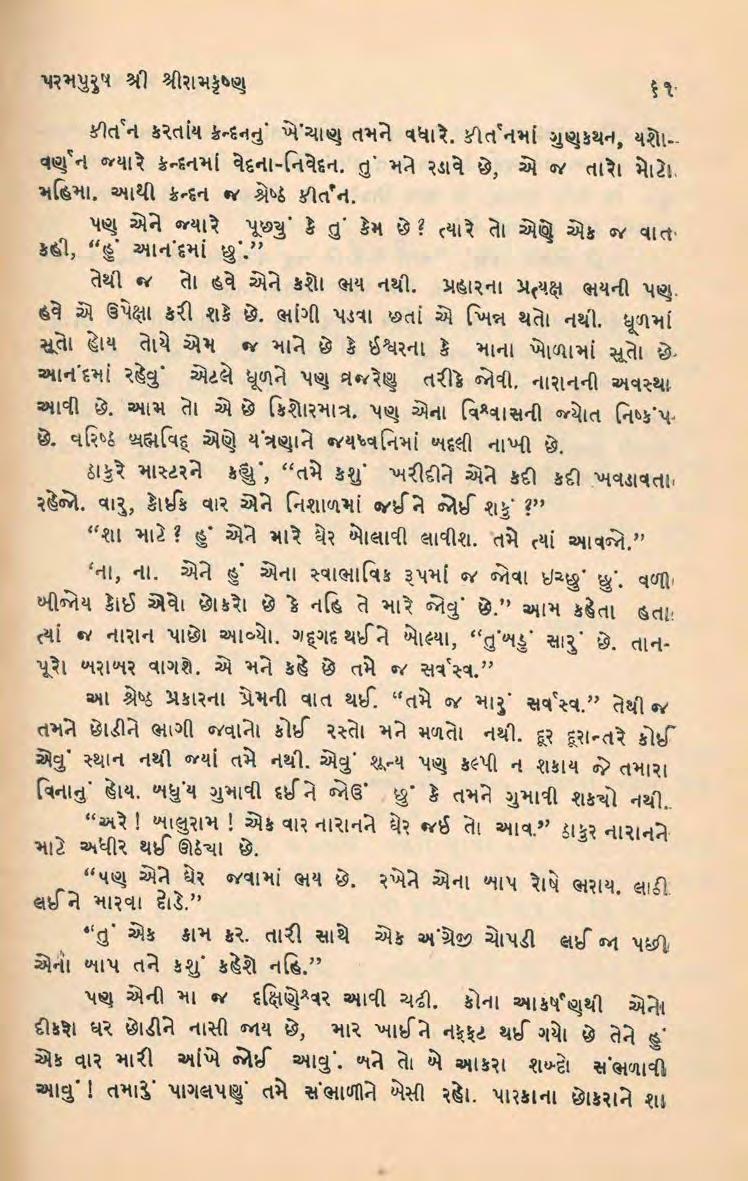 પરમપુરુષ શ્રી શ્રીરામકૃષ્ણ ૬૧
કીર્તન કરતાંય ક્રન્દનનું ખેંચાણ તમને વધારે. કીર્તનમાં ગુણકથન, યશો-
વર્ણન જ્યારે ક્રન્દનમાં વેદના-નિવેદન. તું મને રડાવે છે, એ જ તારો મોટો
મહિમા. આથી ક્રન્દન જ શ્રેષ્ઠ કીર્તન.
પણ એને જ્યારે પૂછ્યું કે તું કેમ છે? ત્યારે તો એણે એક જ વાત
કહી, “હું આનંદમાં છું.”
તેથી જ તો હવે એને કશો ભય નથી. પ્રહારના પ્રત્યક્ષ ભયની પણ
હવે એ ઉપેક્ષા કરી શકે છે. ભાંગી પડવા છતાં એ ખિન્ન થતો નથી. ધૂળમાં
સૂતો હોય તોયે એમ જ માને છે કે ઈશ્વરના કે માના ખોળામાં સૂતો છે.
આનંદમાં રહેવું એટલે ધૂળને પણ વ્રજરેણુ તરીકે જોવી. નારાનની અવસ્થા
આવી છે. આમ તો એ છે કિશોરમાત્ર. પણ એના વિશ્વાસની જ્યોત નિષ્કંપ
છે. વરિષ્ઠ બ્રહ્મવિદ્ એણે યંત્રણાને જયધ્વનિમાં બદલી નાખી છે.
ઠાકુરે માસ્ટરને કહ્યું, “તમે કશું ખરીદીને એને કદી કદી ખવડાવતા
રહેજો. વારુ, કોઈક વાર એને નિશાળમાં જઈને જોઈ શકું ?”
“શા માટે? હું એને મારે ઘેર બોલાવી લાવીશ. તમે ત્યાં આવજો.”
‘ના, ના. એને હું એના સ્વાભાવિક રૂપમાં જ જોવા ઇચ્છું છું. વળી
બીજોય કોઈ એવો છોકરો છે કે નહિ તે મારે જોવું છે.” આમ કહેતા હતા
ત્યાં જ નારાન પાછો આવ્યો. ગદ્ગદ થઈને બોલ્યા, “તું બહુ સારું છે. તાન-
પૂરો બરાબર વાગશે. એ મને કહે છે તમે જ સર્વસ્વ.”
આ શ્રેષ્ઠ પ્રકારના પ્રેમની વાત થઈ. “તમે જ મારું સર્વસ્વ.” તેથી જ
તમને છોડીને ભાગી જવાનો કોઈ રસ્તો મને મળતો નથી. દૂર દૂરાન્તરે કોઈ
એવું સ્થાન નથી જ્યાં તમે નથી. એવું શૂન્ય પણ કલ્પી ન શકાય જે તમારા
વિનાનું હોય. બધુંય ગુમાવી દઈને જોઉં છું કે તમને ગુમાવી શકયો નથી.
“અરે ! બાલુરામ ! એક વાર નારાનને ઘેર જઈ તો આવ.” ઠાકુર નારાનને
માટે અધીર થઈ ઊઠયા છે.
“પણ એને ઘેર જવામાં ભય છે. રખેને એના બાપ રોષે ભરાય. લાઠી
લઈને મારવા દોડે.”
“તું એક કામ કર. તારી સાથે એક અંગ્રેજી ચોપડી લઈ જા પછી
એનો બાપ તને કશું કહેશે નહિ.”
પણ એની મા જ દક્ષિણેશ્વર આવી ચઢી. કોના આકર્ષણથી એનો
દીકરો ઘર છોડીને નાસી જાય છે, માર ખાઈને નક્કટ થઈ ગયો છે તેને હું
એક વાર મારી આંખે જોઈ આવું. બને તો બે આકરા શબ્દો સંભળાવી
આવું ! તમારું પાગલપણું તમે સંભાળીને બેસી રહો. પારકાના છોકરાને શા